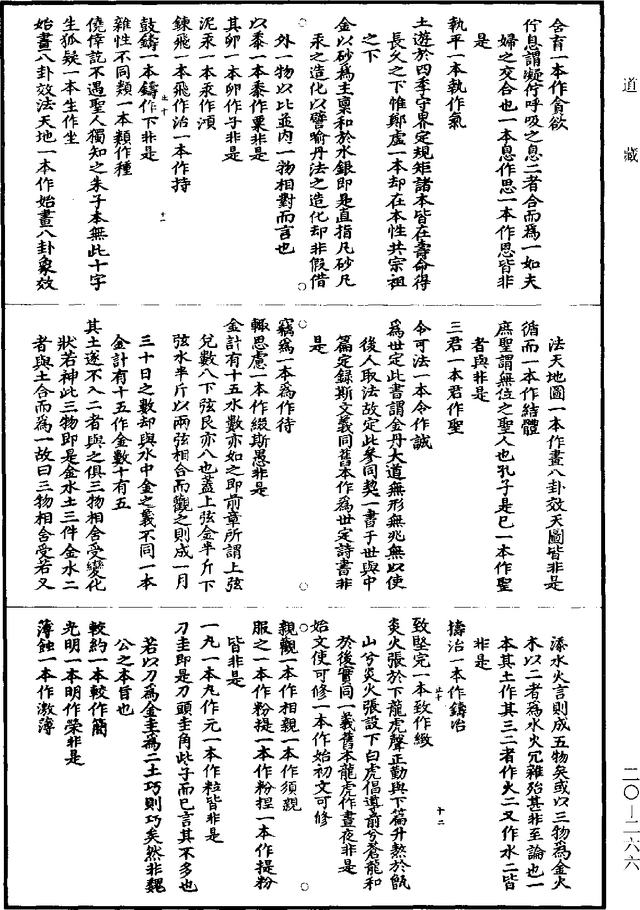 道藏
含育一本作貪欲
佇息謂凝佇呼吸之息二者合而爲一如夫
婦之交合也一本息作思一本作恩皆非
是
執平一本執作氣
土遊於四季守界定規矩諸本皆在壽命得
長久之下惟鄭虛一本却在本性共宗祖
之下
金以砂爲主稟和於水銀即是直指凡砂凡
汞之造化以譬喻丹法之造化却非假借
外一物以比並內一物相對而言也
以黍一本黍作粟非是
其卵一本卵作子非是
泥汞一本汞作澒
鍊飛一本飛作治一本作持
鼓鑄一本鑄作下非是
雜性不同類一本類作種
僥倖訖不遇聖人獨知之朱子本無此十字
生狐疑一本生作坐
始畫八卦效法天地一本作始畫八卦象效
法天地圖一本作畫八卦效天圖皆非是
循而一本作結體
庶聖謂無位之聖人也孔子是已一本作聖
者與非是
三君一本君作聖
令可法一本令作誠
爲世定此書謂金丹大道無形無兆無以使
後人取法故定此參同契一書于世與中
篇定錄斯文義同舊本作爲世定詩書非
是
竊爲一本爲作待
輒思慮一本作綴斯愚非是
金計有十五水數亦如之即前章所謂上弦
兌數八下弦艮亦八也蓋上弦金半斤下
弦水半斤以兩弦相合而觀之則成一月
三十日之數却與水中金之義不同一本
金計有十五作金數十有五
其土遂不入二者與之俱三物相含受變化
狀若神此三物即是金水土三件金水二
者與土合而爲一故曰三物相含受若又
添水火言則成五物矣或以三物爲金火
木以二者爲水火冗雜殆甚非至論也一
本其土作其三二者作火二又作水二皆
非是
擣治一本作鑄冶
致堅完一本致作緻
炎火張於下龍虎聲正勤與下篇升熬於甑
山兮炎火張設下白虎倡導前兮蒼龍和
於後實同一義舊本龍虎作晝夜非是
始文使可修一本作始初文可修
親觀一本作相親一本作須親
服之一本作粉提一本作粉捏一本作提粉
皆非是
一九一本九作元一本作粒皆非是
刀圭即是刀頭圭角些子而已言其不多也
若以刀爲金圭爲二土巧則巧矣然非魏
公之本旨也
較約一本較作簡
光明一本明作榮非是
薄蝕一本作激薄
二〇—二六六